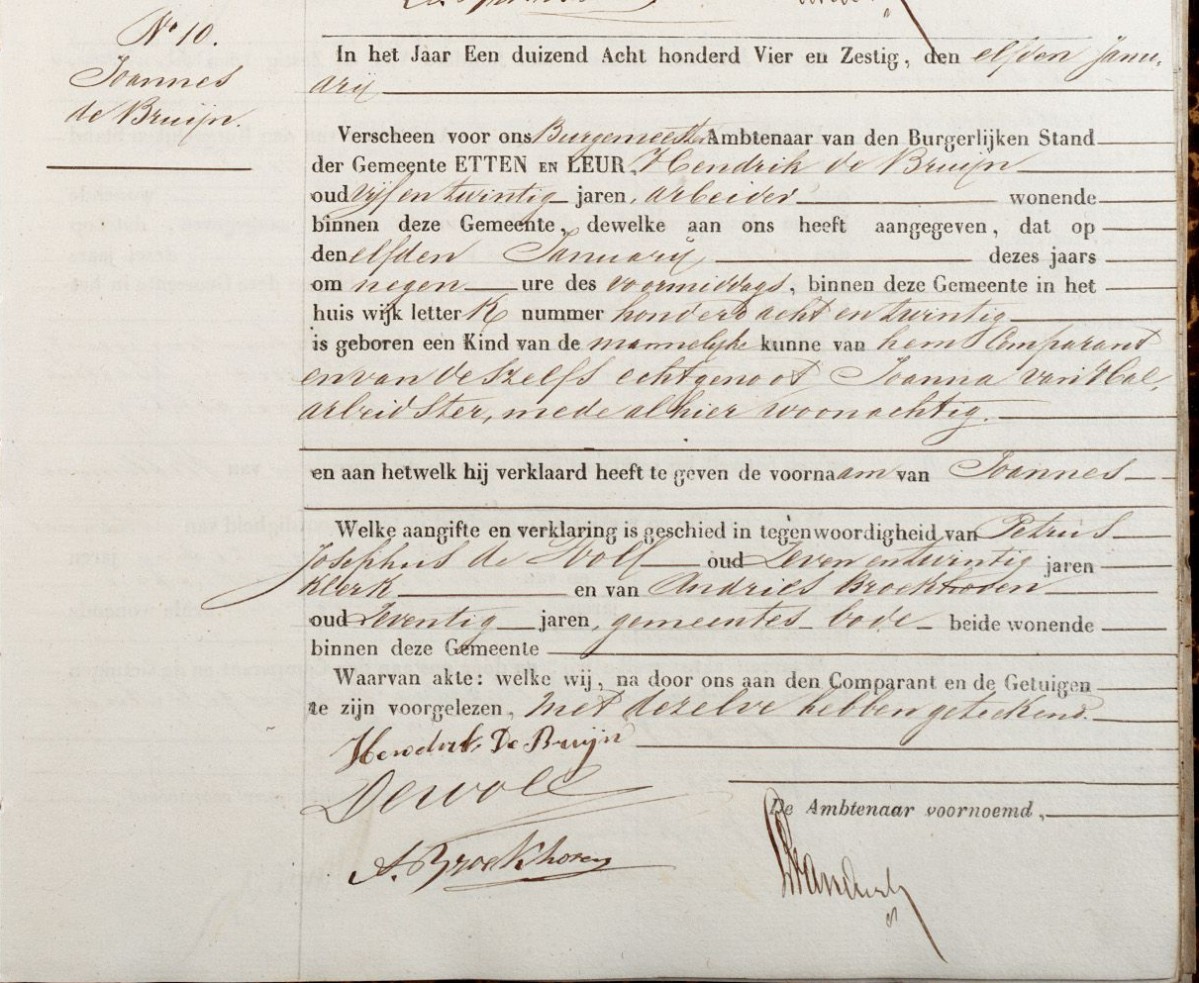 N° 10.
Joannes
de Bruijn.
In het Jaar Een duizend Acht honderd Vier en Zestig, den elfden Janu,
arij
Verscheen voor ons Burgemeester Ambtenaar van den Burgerlijken Stand
der Gemeente ETTEN EN LEUR, Hendrik de Bruijn
oud vijf en twintig jaren, arbeider wonende
binnen deze Gemeente, dewelke aan ons heeft aangegeven, dat op
den elfden Januarij dezes jaars
om negen ure des voormiddags, binnen deze Gemeente in het
huis wijk letter K nummer honderd acht en twintig
is geboren een Kind van de mannelijke kunne van hem Comparant
en van deszelfs echtgenoot Joanna van Hal,
arbeidster, mede alhier woonachtig.
en aan hetwelk hij verklaard heeft te geven de voornaam van Joannes
Welke aangifte en verklaring is geschied in tegenwoordigheid van Petrus
Josephus de Wolf oud Zeven en twintig jaren
Klerk en van Andries Broekhoven
oud Zeventig jaren, gemeentes bode beide wonende
binnen deze Gemeente
Waarvan akte: welke wij, na door ons aan den Comparant en de Getuigen
te zijn voorgelezen, met dezelve hebben geteekend.
Hendrik De Bruijn
De Wolf
De Ambtenaar voornoemd,
A. Broekhoven